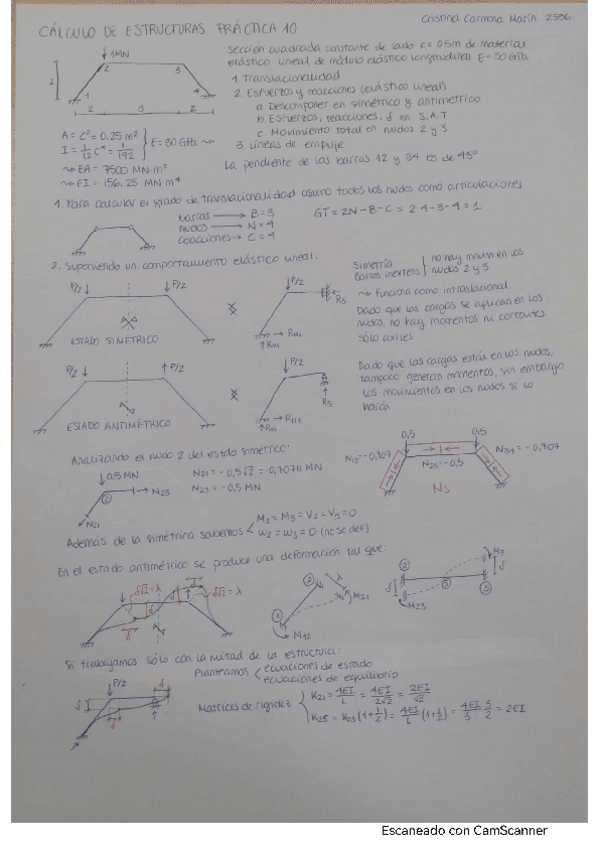 Cristina Carmona Marín 2556
CÁLCULO DE ESTRUCTURAS PRÁCTICA 10
1MN
2
3
1
4
2
2 3 2
Sección cuadrada constante de lado c = 0,5m de material
elástico lineal de módulo elástico longitudinal E = 30 GPa
1. Translacionalidad
2. Esfuerzos y reacciones (elástico lineal)
a. Descomponer en simétrico y antimétrico
b. Esfuerzos, reacciones, δ en S, A, T
c. Movimiento total en nudos 2 y 3
3. Líneas de empuje
La pendiente de las barras 12 y 34 es de 45º
A = c² = 0,25 m²
I = 1/12 c⁴ = 1/192
E = 30 GPa
→ EA = 7500 MN m²
→ EI = 156,25 MN m⁴
1. Para calcular el grado de translacionalidad asumo todos los nudos como articulaciones
barras → B = 3
nudos → N = 4
coacciones → C = 4
GT = 2N - B - C = 2·4 - 3 - 4 = 1
2. Suponiendo un comportamiento elástico lineal:
P/2 P/2
ESTADO SIMÉTRICO
P/2
Simetría
Barras inextens
no hay movim en los
nudos 2 y 3
→ funciona como intraslacional
Dado que las cargas se aplican en los
nudos, no hay momentos ni cortantes
sólo axiles
P/2 P/2
ESTADO ANTIMÉTRICO
P/2
Dado que las cargas están en los nudos,
tampoco generan momentos, sin embargo
los movimientos en los nudos si lo
harán
Analizando el nudo 2 del estado simétrico:
0,5 MN
2
N23
N21
N21 = -0,5√2 = -0,70711 MN
N23 = -0,5 MN
0,5 0,5
N12 = -0,707
N23 = -0,5
N34 = -0,707
Ns
Además de la simetría sabemos
M2 = M3 = V2 = V3 = 0
u2 = u3 = 0 (no se def)
En el estado antimétrico se produce una deformación tal que:
δ√2 = λ
δ√2 = λ
2
λ
M21
1
M12
2
M23
5
3
δ
Si trabajamos sólo con la mitad de la estructura:
P/2
δ
δ
Planteamos
ecuaciones de estado
ecuaciones de equilibrio
Matrices de rigidez
K21 = 4EI/L = 4EI/2√2 = 2EI/√2
K25 = K23 (1+1/2) = 4EI/L (1+1/2) = 4EI/3 · 3/2 = 2EI
Escaneado con CamScanner